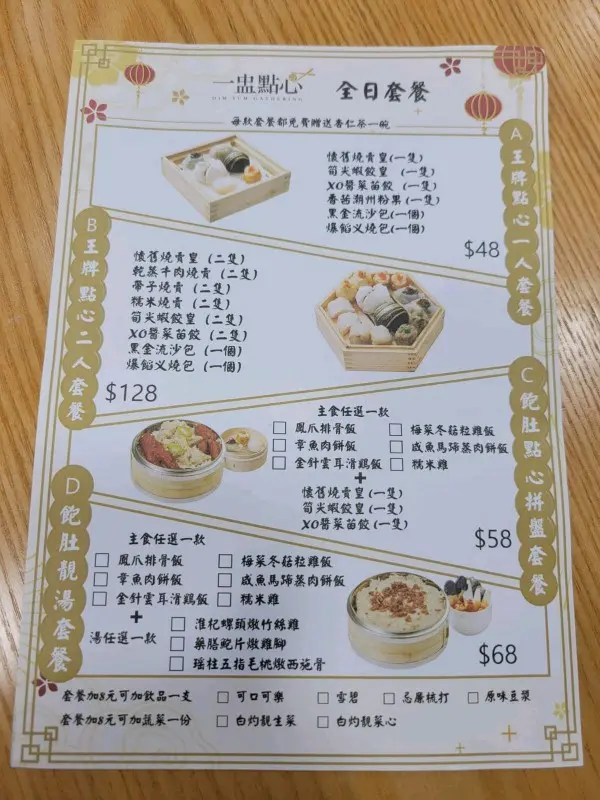 一盅點心
DIM SUM GATHERING
全日套餐
每款套餐都免費贈送杏仁茶一碗
A王牌點心一人套餐
懷舊燒賣皇(一隻)
筍尖蝦餃皇 (一隻)
XO醬菜苗餃 (一隻)
香茜潮州粉果 (一隻)
黑金流沙包(一個)
爆餡叉燒包(一個)
$48
B王牌點心二人套餐
懷舊燒賣皇 (二隻)
乾蒸牛肉燒賣 (二隻)
帶子燒賣 (二隻)
糯米燒賣 (二隻)
筍尖蝦餃皇 (二隻)
XO醬菜苗餃 (二隻)
黑金流沙包 (一個)
爆餡叉燒包 (一個)
$128
C飽肚點心拼盤套餐
主食任選一款
鳳爪排骨飯
梅菜冬菇粒雞飯
章魚肉餅飯
咸魚馬蹄蒸肉餅飯
金針雲耳滑雞飯
糯米雞
+
懷舊燒賣皇(一隻)
筍尖蝦餃皇(一隻)
XO醬菜苗餃(一隻)
$58
D飽肚靚湯套餐
主食任選一款
鳳爪排骨飯
梅菜冬菇粒雞飯
章魚肉餅飯
咸魚馬蹄蒸肉餅飯
金針雲耳滑雞飯
糯米雞
+
湯任選一款
淮杞螺頭燉竹絲雞
藥膳鮑片燉雞腳
瑤柱五指毛桃燉西施骨
$68
套餐加8元可加飲品一支
可口可樂
雪碧
忌廉梳打
原味豆漿
套餐加8元可加蔬菜一份
白灼靚生菜
白灼靚菜心